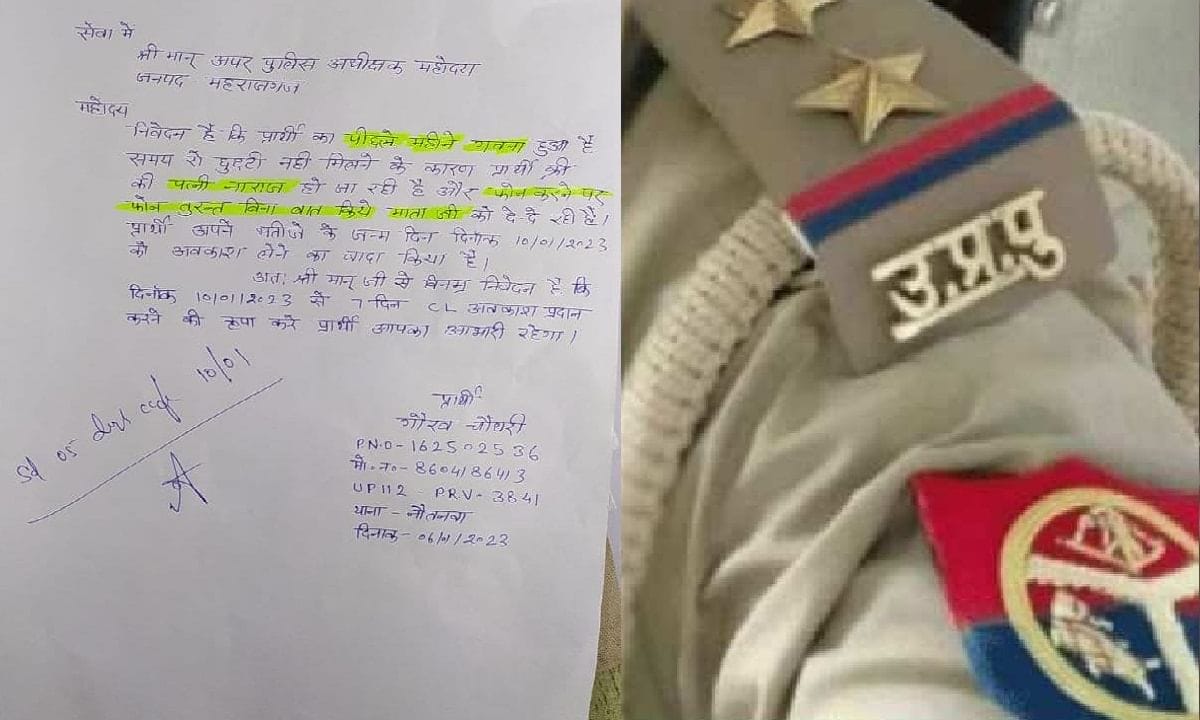 सेवा में
श्री मान् अपर पुलिस अधीक्षक महोदय
जनपद महराजगंज
महोदय
निवेदन है कि प्रार्थी का पीछले महीने गवना हुआ है
समय से छुट्टी नही मिलने के कारण प्रार्थी की
की पत्नी नाराज हो जा रही है और फोन करने पर
फोन तुरन्त बिना बात किये माता जी को दे दे रही है।
प्रार्थी अपने भतीजे के जन्म दिन दिनांक 10/01/2023
को अवकाश लेने का वादा किया है।
अतः श्री मान् जी से विनम्र निवेदन है कि
दिनांक 10/01/2023 से 7 दिन CL अवकाश प्रदान
करने की कृपा करे प्रार्थी आपका आभारी रहेगा।
10/01
प्रार्थी
गौरव चौधरी
PNO- 162502536
मो.न०- 8604186413
UP112 - PRV- 3841
थाना - नौतनवा
दिनांक- 06/01/2023
उ.प्र.पु